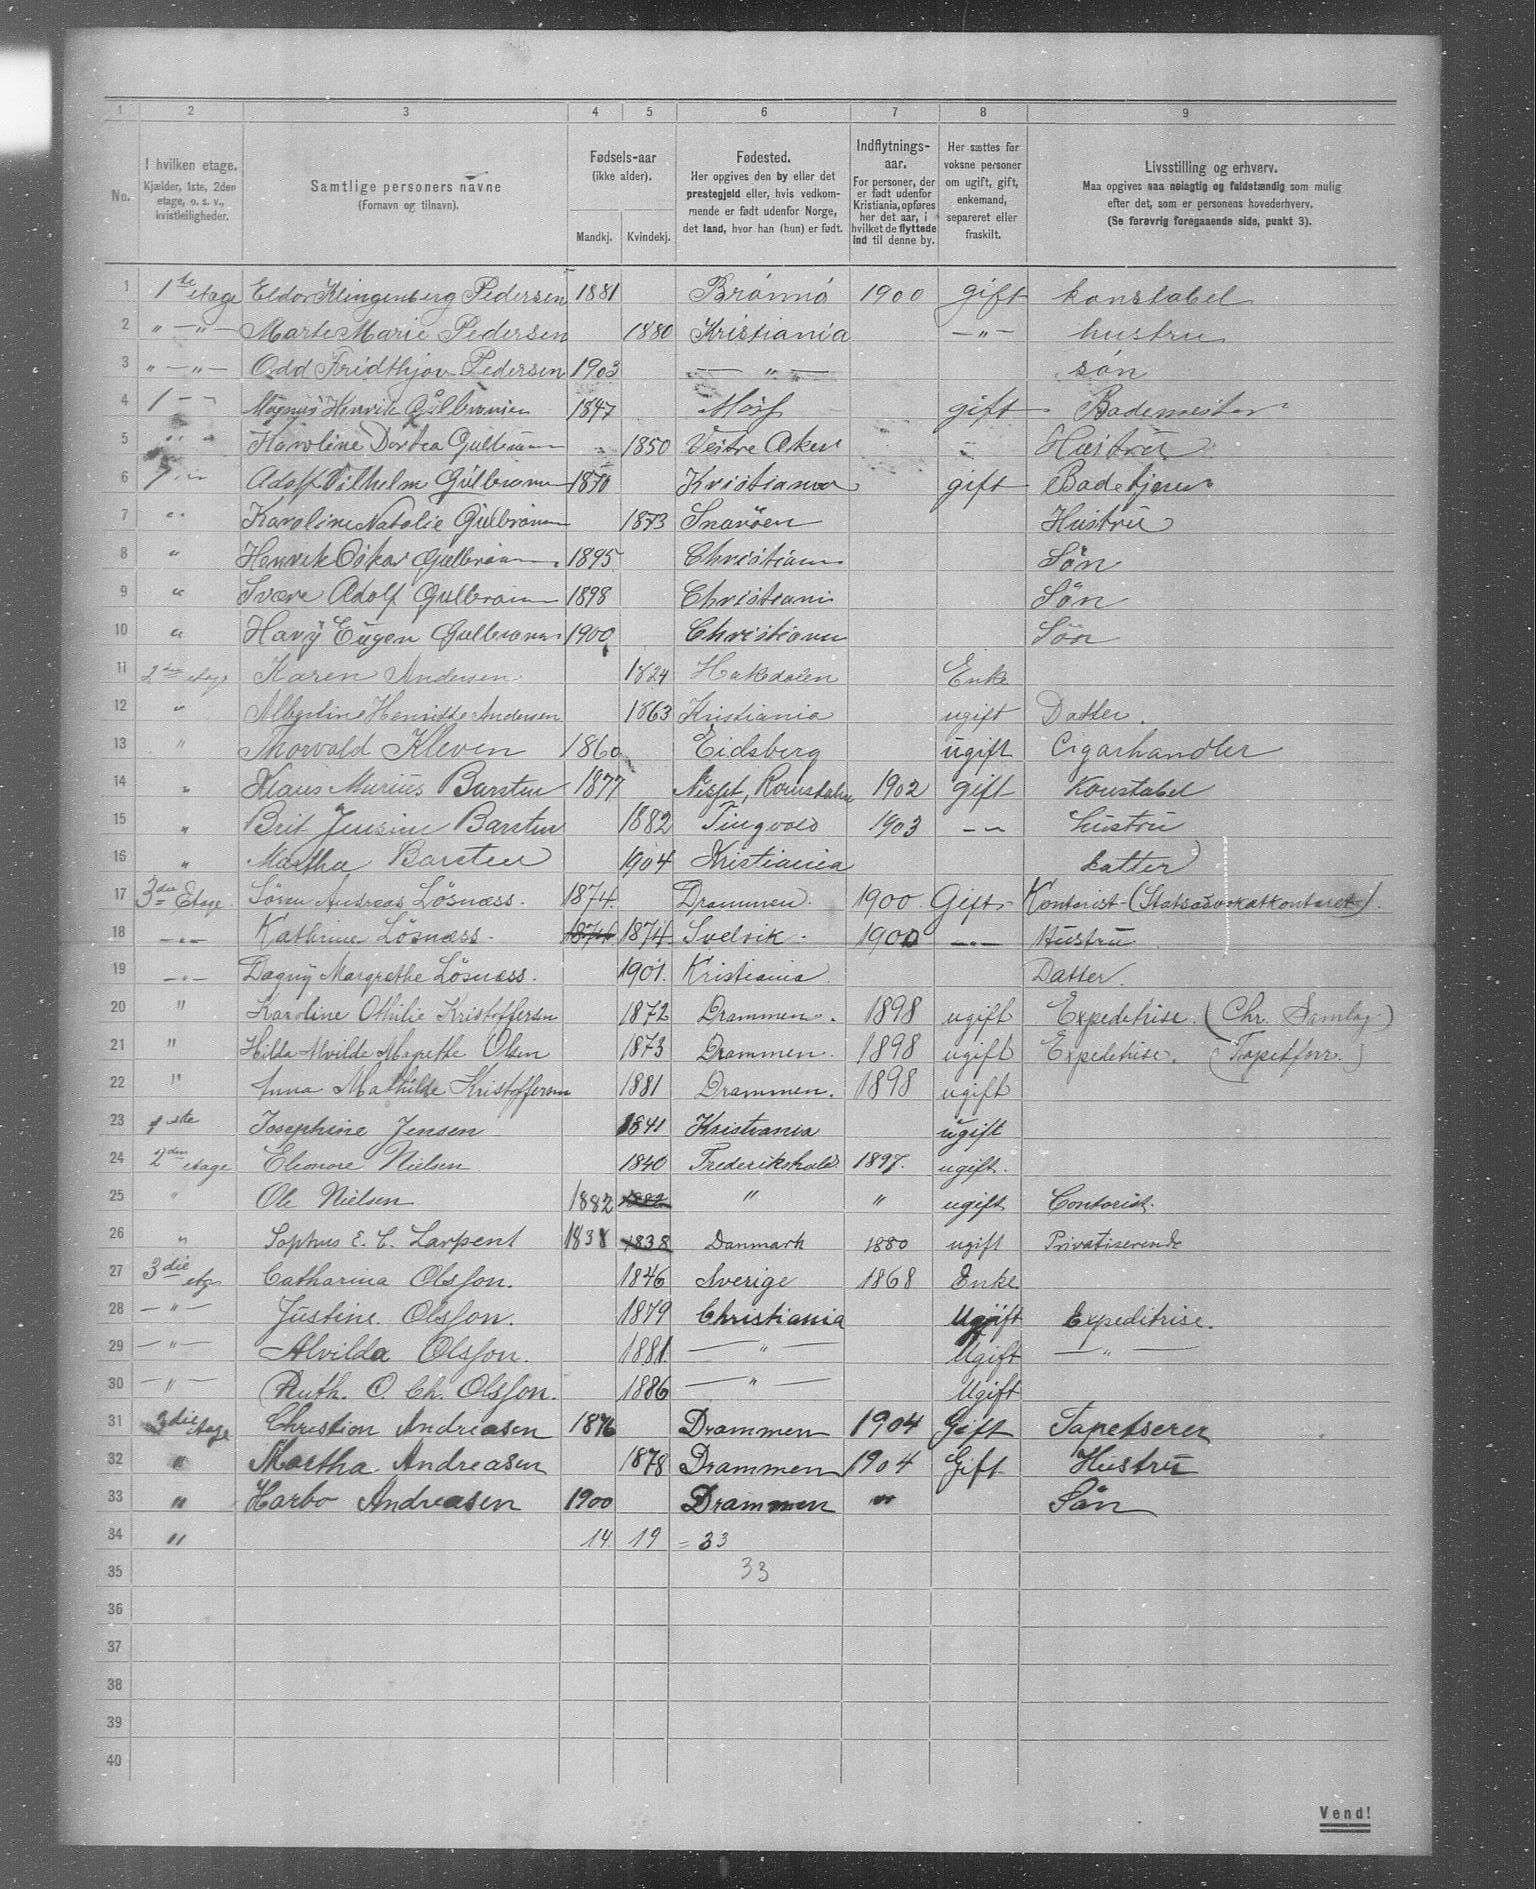 1 2 3 4 5 6 7 8 9
No.
I hvilken etage.
Kjælder, 1ste, 2den
etage, o. s. v.,
kvistleiligheder.
Samtlige personers navne
(Fornavn og tilnavn).
Fødsels-aar
(ikke alder).
Mandkj. Kvindekj.
Fødested.
Her opgives den by eller det
prestegjeld eller, hvis vedkom-
mende er født udenfor Norge,
det land, hvor han (hun) er født.
Indflytnings-
aar.
For personer, der
er født udenfor
Kristiania, opføres
her det aar, i
hvilket de flyttede
ind til denne by.
Her sættes for
voksne personer
om ugift, gift,
enkemand,
separeret eller
fraskilt.
Livsstilling og erhverv.
Maa opgives saa nøiagtig og fuldstændig som mulig
efter det, som er personens hovederhverv.
(Se forøvrig foregaaende side, punkt 3).
1 1ste etage Eldor Klingenberg Pedersen 1881 Brønnø 1900 gift konstabel
2 „ — „ — Marte Marie Pedersen 1880 Kristiania — „ — hustru
3 „ — „ — Odd Fridthjov Pedersen 1903 — „ — søn
4 1 — „ Magnus Henrik Gulbransen 1847 Moss gift Bademester
5 „ „ Karoline Dortea Gulbransen 1850 Vestre Aker „ Hustru
6 1 „ Adolf Vilhelm Gulbransen 1870 Kristiania gift Badetjener
7 „ Karoline Natalie Gulbransen 1873 Snarøen Hustru
8 „ Henrik Oskar Gulbransen 1895 Christiania Søn
9 „ Sverre Adolf Gulbransen 1898 Christiani Søn
10 „ Harry Eugen Gulbransen 1900 Christiania Søn
11 2den etage Karen Andersen 1824 Hakedalen Enke
12 „ Albertine Henriette Andersen 1863 Kristiania ugift Datter.
13 „ Thorvald Kleven 1860 Eidsberg ugift Cigarhandler
14 „ Klaus Marius Barsten 1877 Nesset, Romsdalen 1902 gift Konstabel
15 „ Brit Jensine Barsten 1882 Tingvold 1903 — „ — hustru
16 „ Martha Barsten 1904 Kristiania datter
17 3die Etage Søren Andreas Løsnæss. 1874. Drammen. 1900 Gift. Kontorist (Statsadvokatkontoret).
18 — „ — Kathrine Løsnæss. 1874 1874. Svelvik. 1900 — „ — Hustru
19 — „ — Dagny Margrethe Løsnæss. 1901. Kristiania Datter.
20 „ Karoline Othilie Kristoffersen 1872 Drammen. 1898 ugift Expeditrise. (Chr. Samlag)
21 „ Hilda Alvilde Magrethe Olsen 1873 Drammen. 1898 ugift Expeditrise. (Tapetforr.)
22 „ Anna Mathilde Kristoffersen 1881 Drammen. 1898 ugift
23 1ste Josephine Jensen 1841 Kristiania ugift
24 2den etage Eleonore Nielsen 1840 Frederikshald 1897. ugift.
25 „ Ole Nielsen 1882 1882 „ „ ugift Contorist.
26 „ Sophus E. C. Larpent 1838 1838 Danmark 1880 ugift Privatiserende
27 3die etg Catharina Olsson. 1846 Sverige 1868 Enke
28 — „ — Justine Olsson. 1879 Christiania Ugift Expeditrise.
29 — „ — Alvilda Olsson. 1881. — „ — Ugift — „ —
30 — „ — Ruth. O. Ch. Olsson. 1886 — „ — Ugift
31 3die etage Christian Andreasen 1876 Drammen 1904 Gift Tapetserer
32 „ Martha Andreasen 1878 Drammen 1904 Gift Hustru
33 „ Harbo Andreasen 1900 Drammen „ Søn
34 „ 14. 19 = 33
35 33
36
37
38
39
40
Vend!